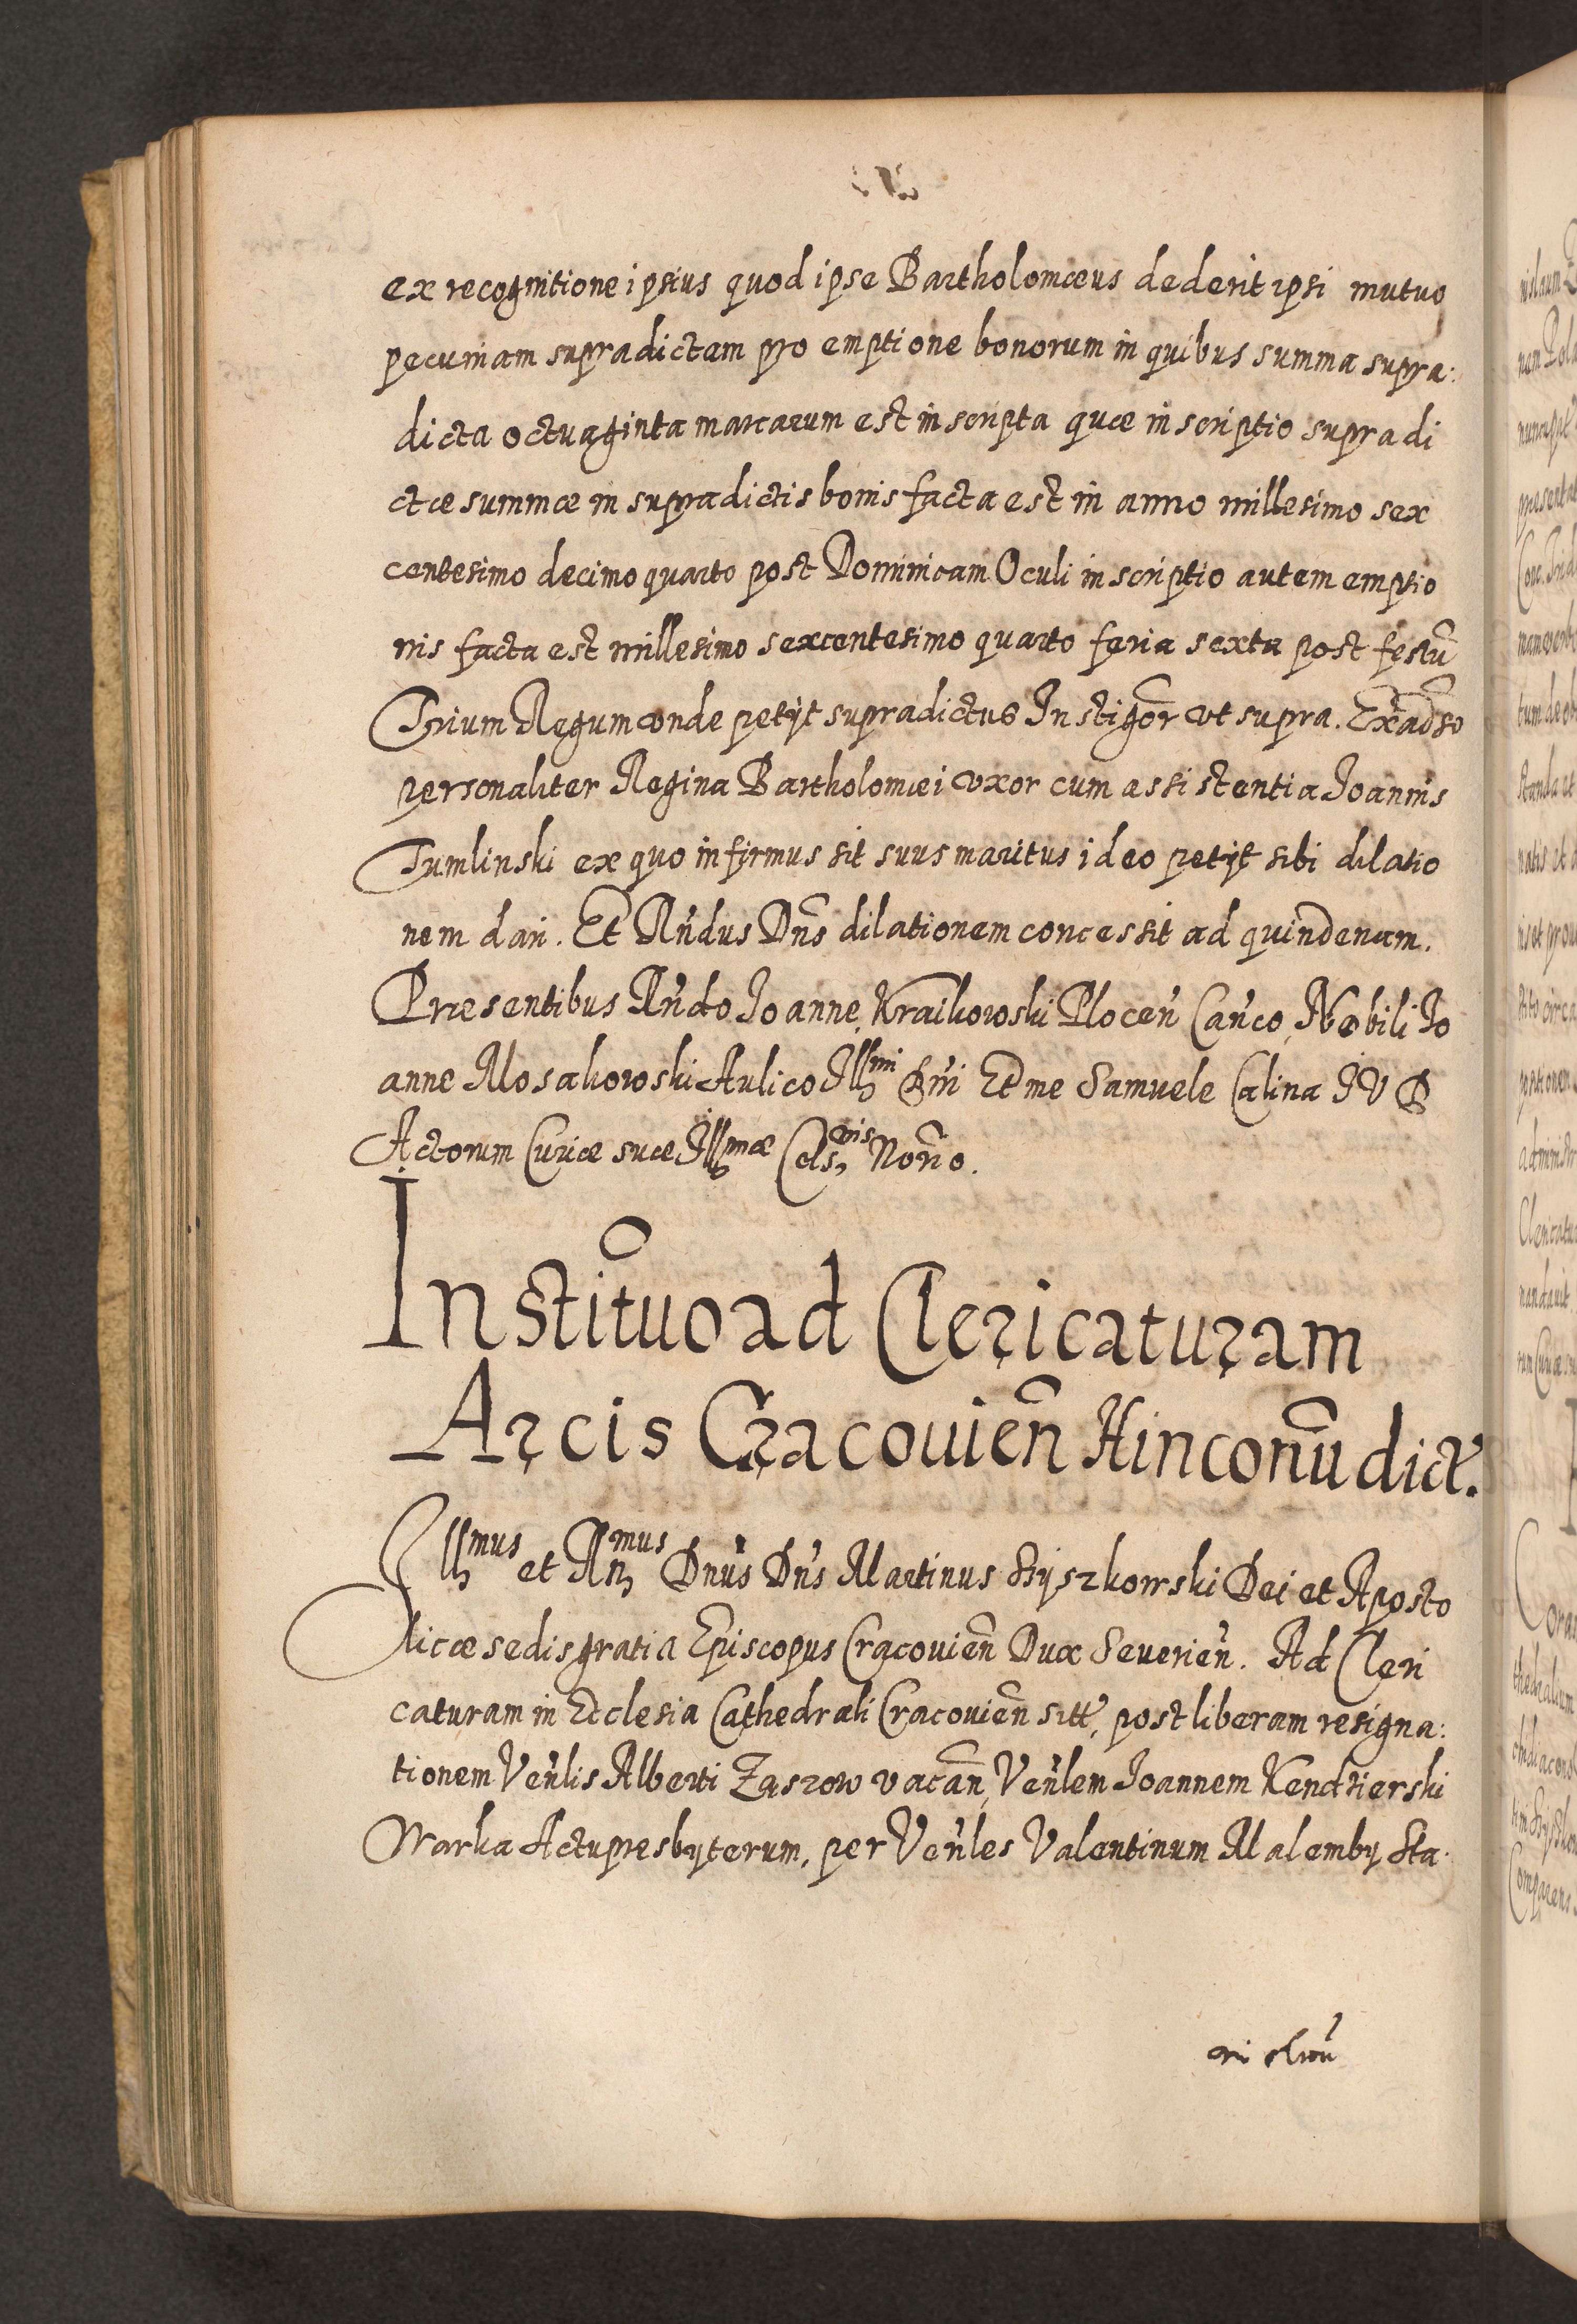 ex recognitione ipsius quod ipse Bartholomæus dederit ipsi mutuo
pecuniam supradictam pro emptione bonorum in quibus summa supra:
dicta octuaginta marcarum est inscripta quæ inscriptio supradi
ctæ summæ in supradictis bonis facta est in anno millesimo sex
centesimo decimo quarto post Dominicam Oculi inscriptio autem emptio
nis facta est millesimo sexcentesimo quarto feria sexta post festũ
Trium Regum vnde petÿt supradictus Instigõr vt supra. Ex adũso
personaliter Regina Bartholomæi vxor cum assistentia Joannis
Tumlinski ex quo infirmus sit suus maritus ideo petÿt sibi dilatio
nem dari. Et Rñdus Dñs dilationem concessit ad quindenam.
Præsentibus Rñdo Joanne Kraikowski Plocen̄ Can̄co, Nobili Jo
anne Mosakowski Aulico Illmi Dñi Et me Samuele Calina J V D
Actorum Curiæ suæ Illmæ Cels: nis Nor̃io.
Institũo ad Clericaturam
Arcis Cracouien̄ Hinconũ dict.
Illmus et Rmus Dnũs Dñs Martinus Szÿszkowski Dei et Aposto
licæ sedis gratia Episcopus Cracouien̄ Dux Seuerien̄. Ad Cleri
caturam in Ecclesia Cathedrali Cracouien̄ sitt, post liberam resigna:
tionem Ven̄lis Alberti Zaszow vacan̄, Ven̄lem Joannem Kendzierski
Warka Actu presbÿterum, per Ven̄les Valentinum Malembÿ Sta.